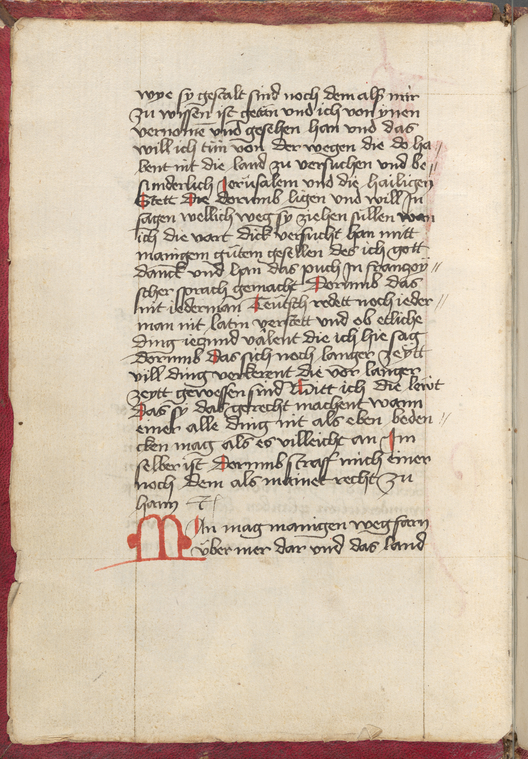 wye sy gestalt sind noch dem als mir
zu wissen ist getan und ich von ynen
vernome und gesehen han und das
will ich tun von der wegen die do ha //
bent mit die land zu versuchen und be //
sunderlich Jerusalem und die hailigen
Stett Die dorumb ligen und will In
sagen wellich weg sy ziehen sullen wan
ich die vart dick versucht han mitt
manigem gutem gesellen des ich gott
danck und han das puch In franczoy //
scher sprach gemacht Dorumb das
nit iederman Teutsch redett noch ieder //
man nit latin verstett und ob etliche
ding iegund valent die ich hie sag
dorumb Das sich noch langer zeytt
vill ding verkerent die vor langer
zeytt gewessen sind Bitt ich die lewt
Das sy das gerecht machent wann
einer alle ding nit als eben beden //
cken mag als es villeicht an Im
selber ist Dorumb straff mich einer
noch dem als mainer recht zu
hann
MAn mag manigen weg farn
uber mer dar und das land